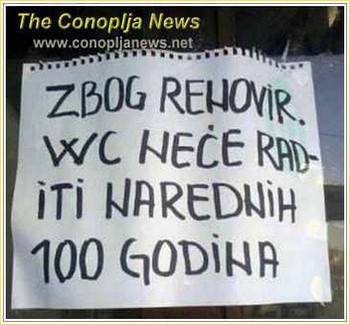 The Conoplja News
www.conopljanews.net
ZBOG RENOVIR.
WC NEĆE RAD-
ITI NAREDNIH
100 GODINA